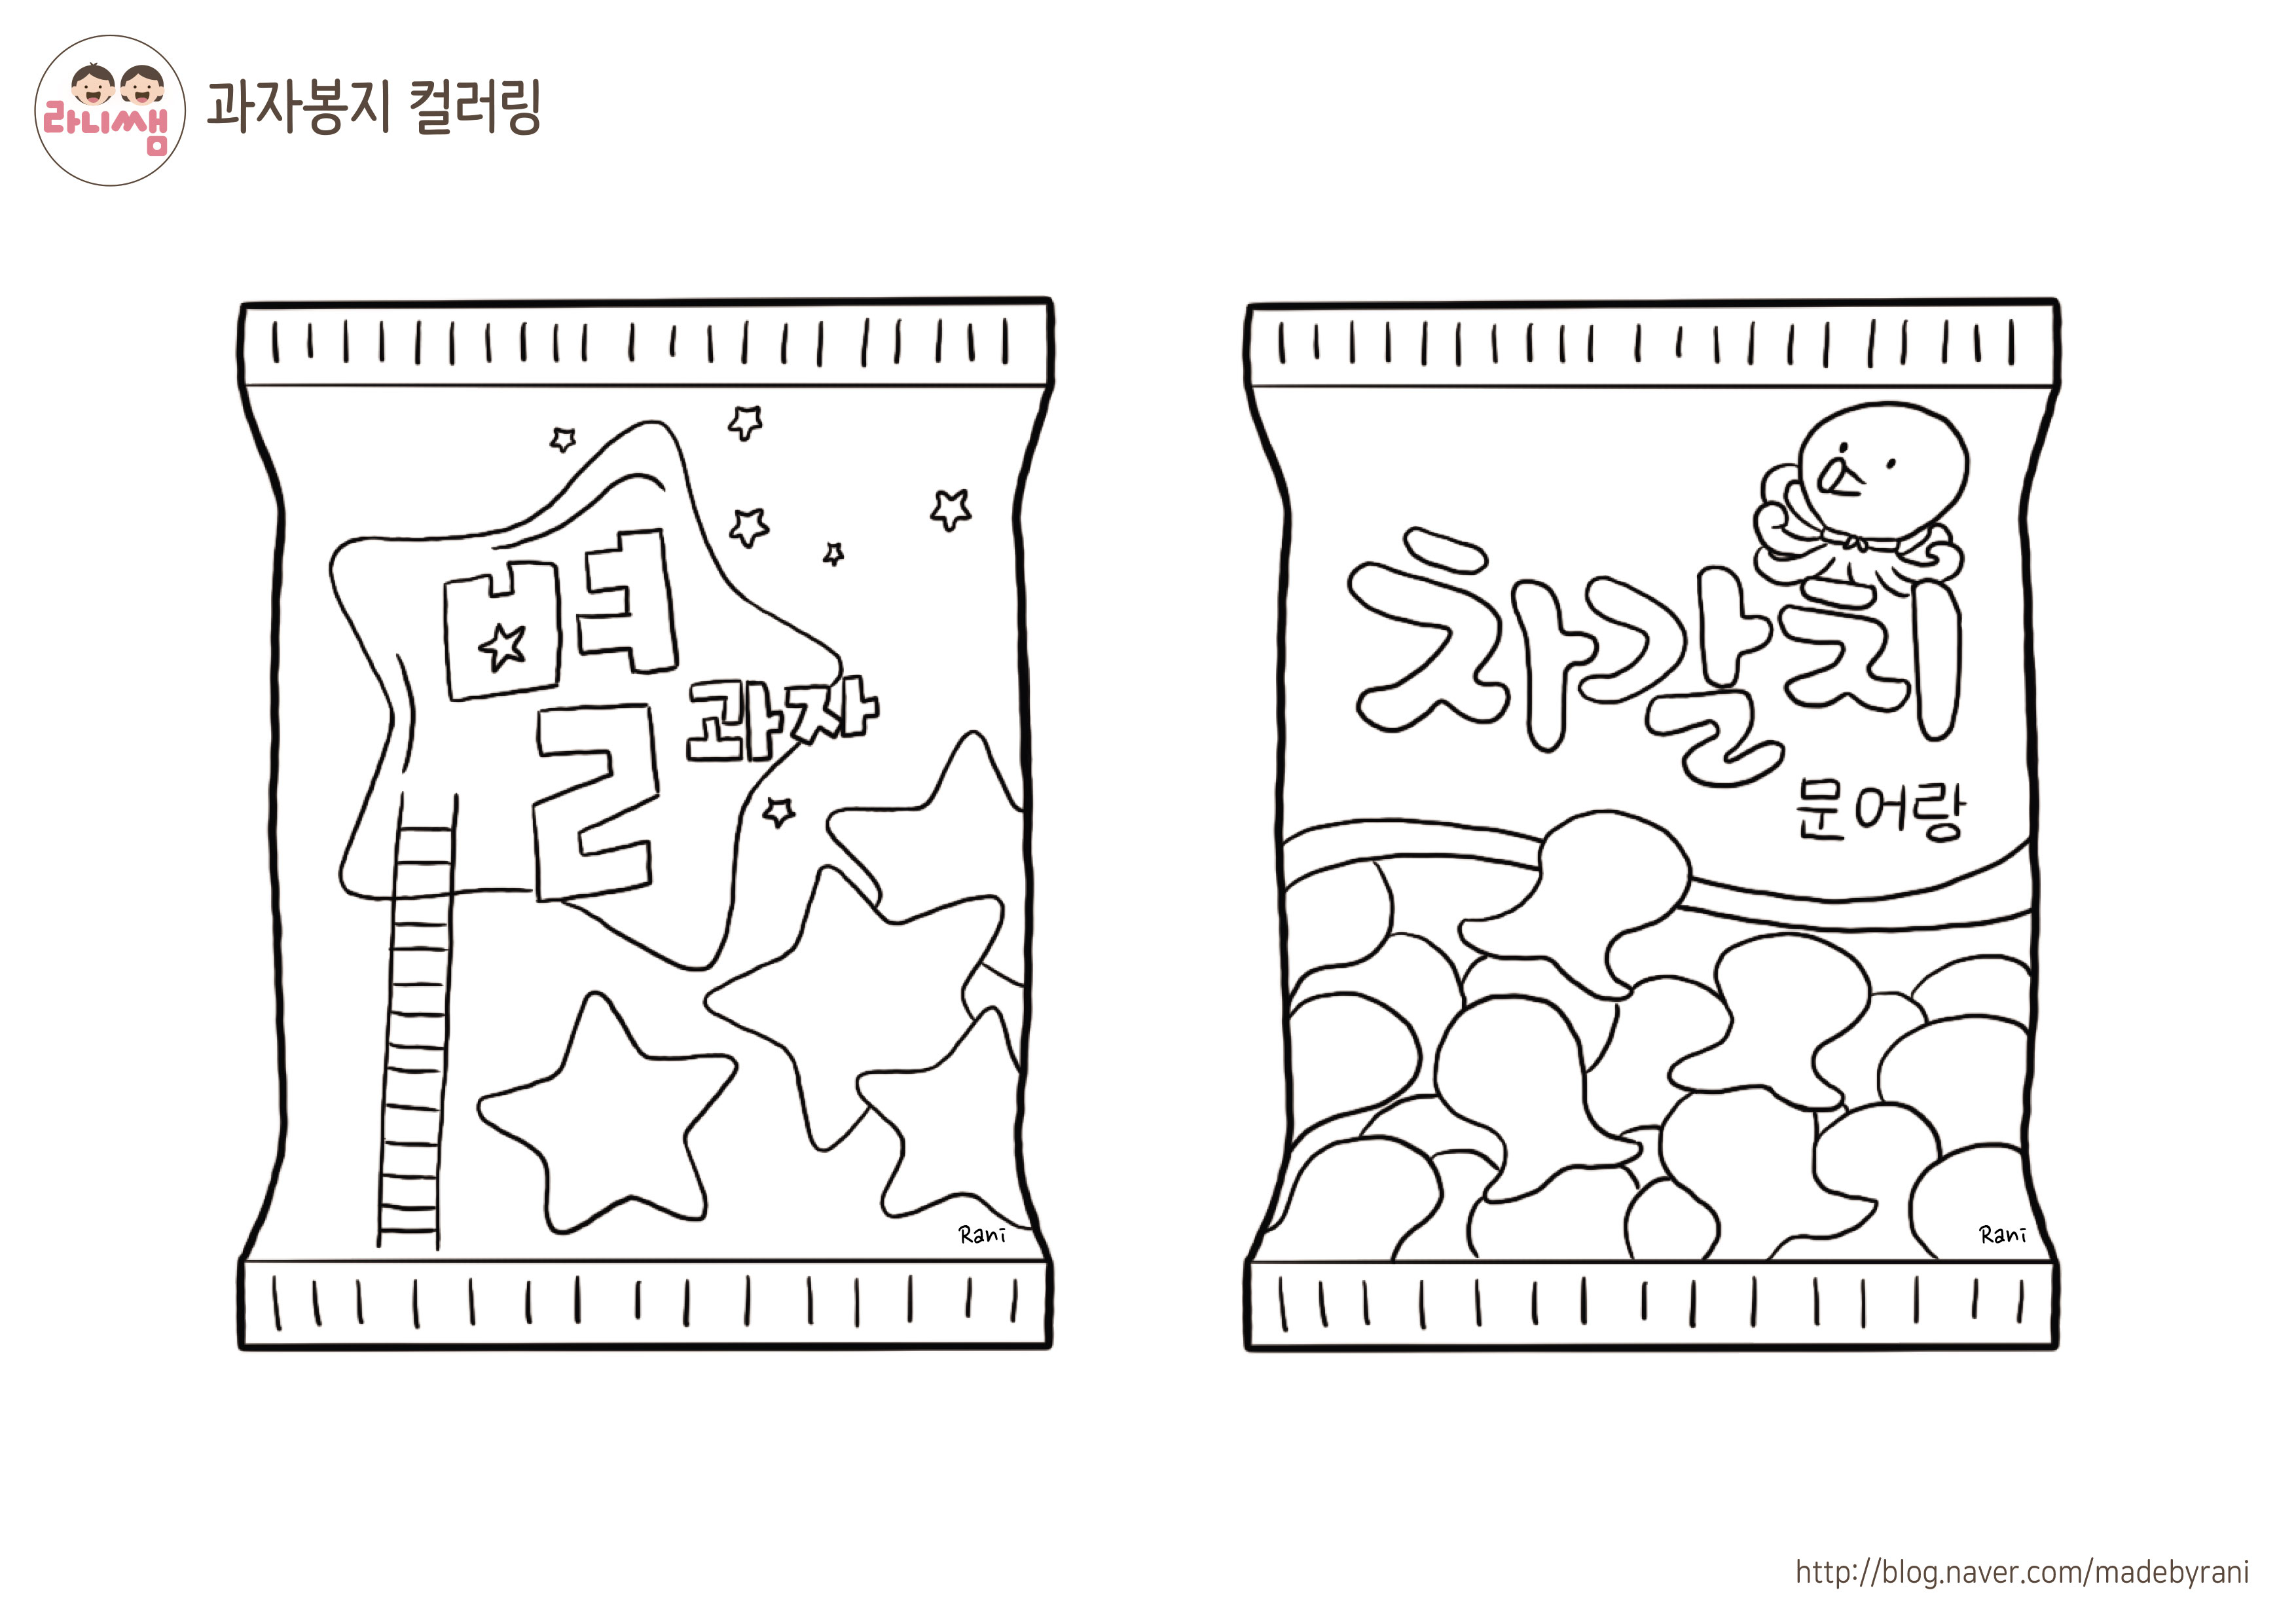 라니쌤
과자봉지 컬러링
별
과자
Rani
차갈치
문어랑
Rani
http://blog.naver.com/madebyrani